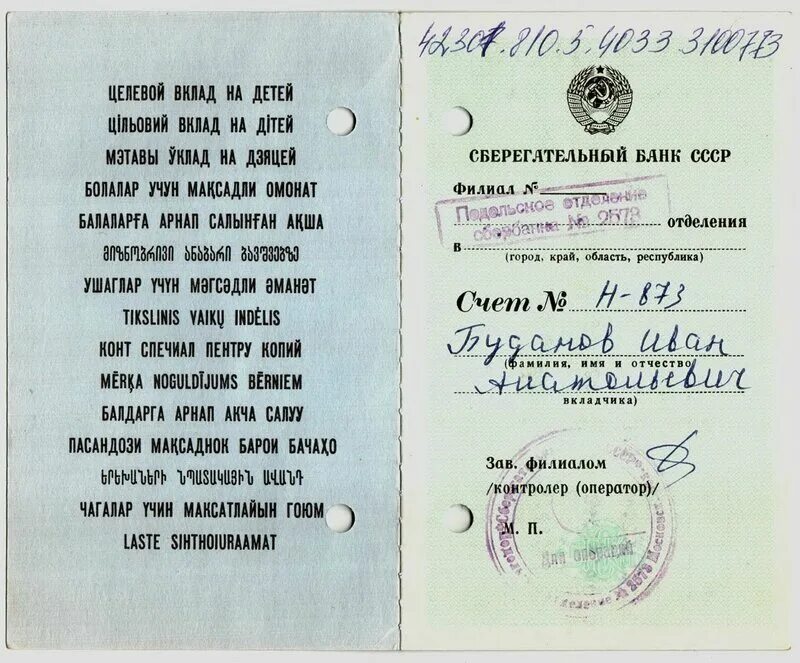 ЦЕЛЕВОЙ ВКЛАД НА ДЕТЕЙ
ЦІЛЬОВИЙ ВКЛАД НА ДІТЕЙ
МЭТАВЫ ЎКЛАД НА ДЗЯЦЕЙ
БОЛАЛАР УЧУН МАҚСАДЛИ ОМОНАТ
БАЛАЛАРҒА АРНАП САЛЫНҒАН АҚША
ᲛᲘᲖᲜᲝᲑᲠᲘᲕᲘ ᲐᲜᲐᲑᲐᲠᲘ ᲑᲐᲕᲨᲕᲔᲑᲖᲔ
УШАГЛАР ҮЧҮН МӘГСӘДЛИ ӘМАНӘТ
TIKSLINIS VAIKŲ INDĖLIS
КОНТ СПЕЧИАЛ ПЕНТРУ КОПИЙ
MĒRĶA NOGULDĪJUMS BĒRNIEM
БАЛДАРГА АРНАП АКЧА САЛУУ
ПАСАНДОЗИ МАҚСАДНОК БАРОИ БАЧАҲО
ԵՐԵԽԱՆԵՐԻ ՆՊԱՏԱԿԱՅԻՆ ԱՎԱՆԴ
ЧАГАЛАР ҮЧИН МАКСАТЛАЙЫН ГОЮМ
LASTE SIHTHOIURAAMAT
42307.810.5.4033 3100773
СБЕРЕГАТЕЛЬНЫЙ БАНК СССР
Филиал №
Подольское отделение
сбербанка № 2573
отделения
в
(город, край, область, республика)
Счет № Н-873
Буданов Иван
(фамилия, имя и отчество
Анатольевич
вкладчика)
Зав. филиалом
/контролер (оператор)/
М. П.
Для операций
отделение № 2573 Московск